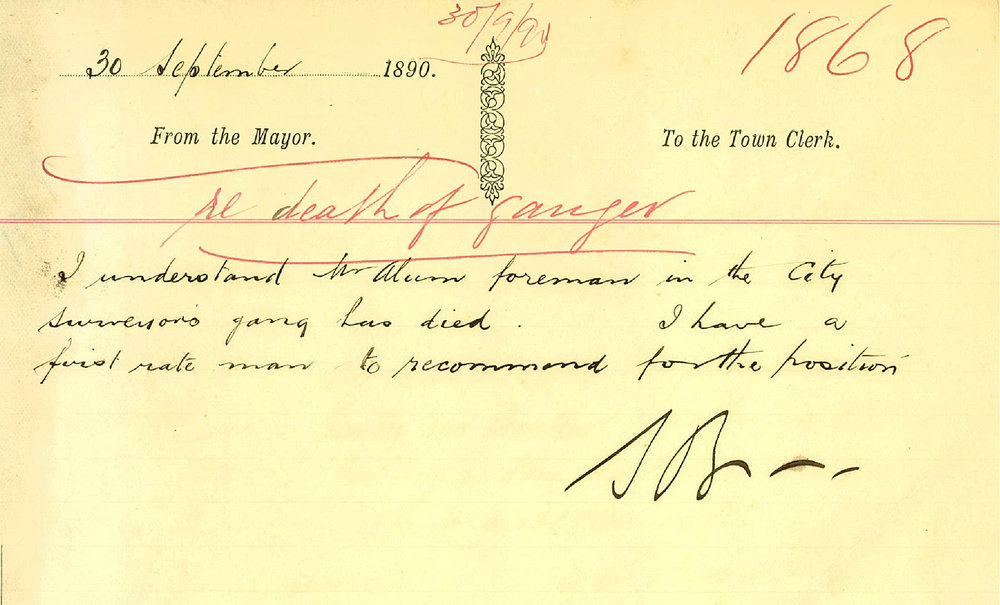 30/9/90
1868
30 September 1890.
From the Mayor.
To the Town Clerk.
re death of ganger
I understand Mr Alum foreman in the City
Surveyors gang has died. I have a
first rate man to recommend for the position